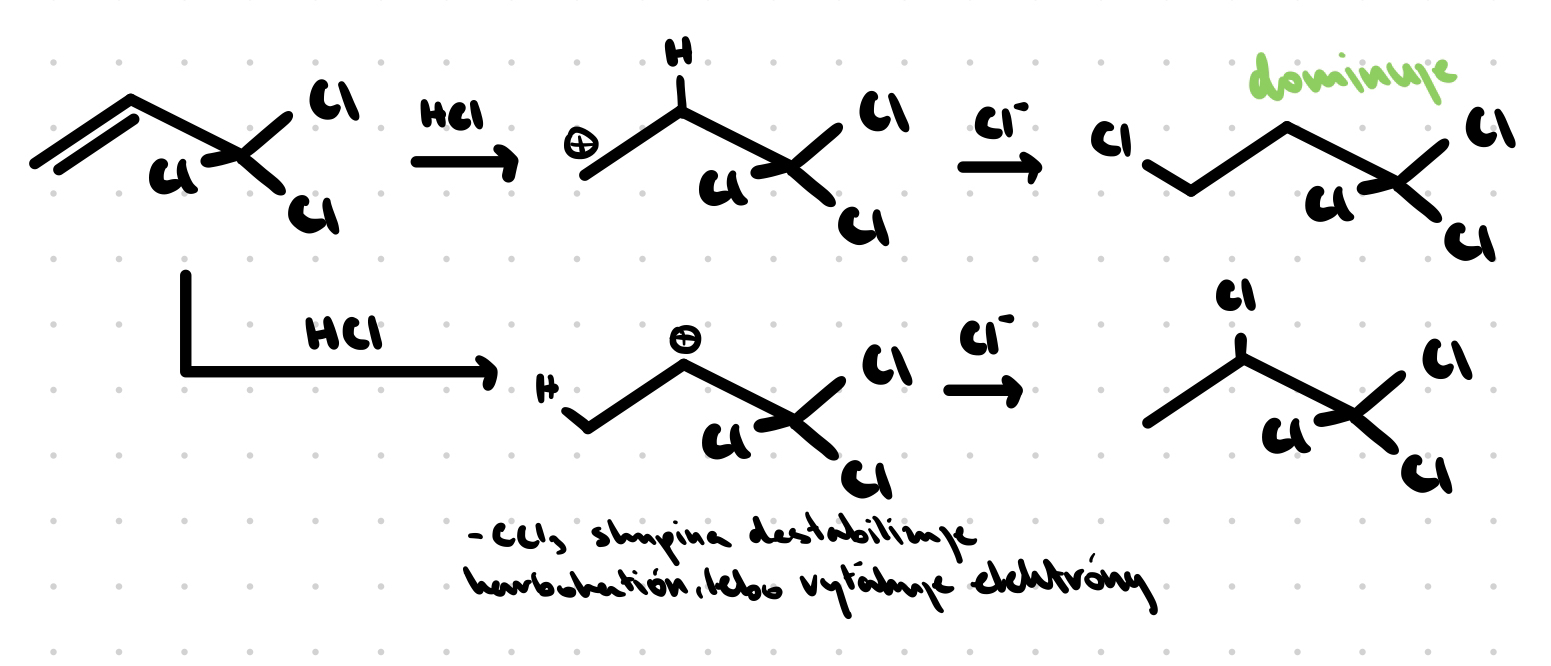 H
dominuje
Cl
HCl
⊕
Cl
Cl⁻
Cl
Cl
Cl
Cl
Cl
Cl
Cl
Cl
Cl
HCl
⊕
Cl⁻
Cl
H
Cl
Cl
Cl
Cl
Cl
Cl
-CCl₃ skupina destabilizuje
karbokatión, lebo vyťahuje elektróny